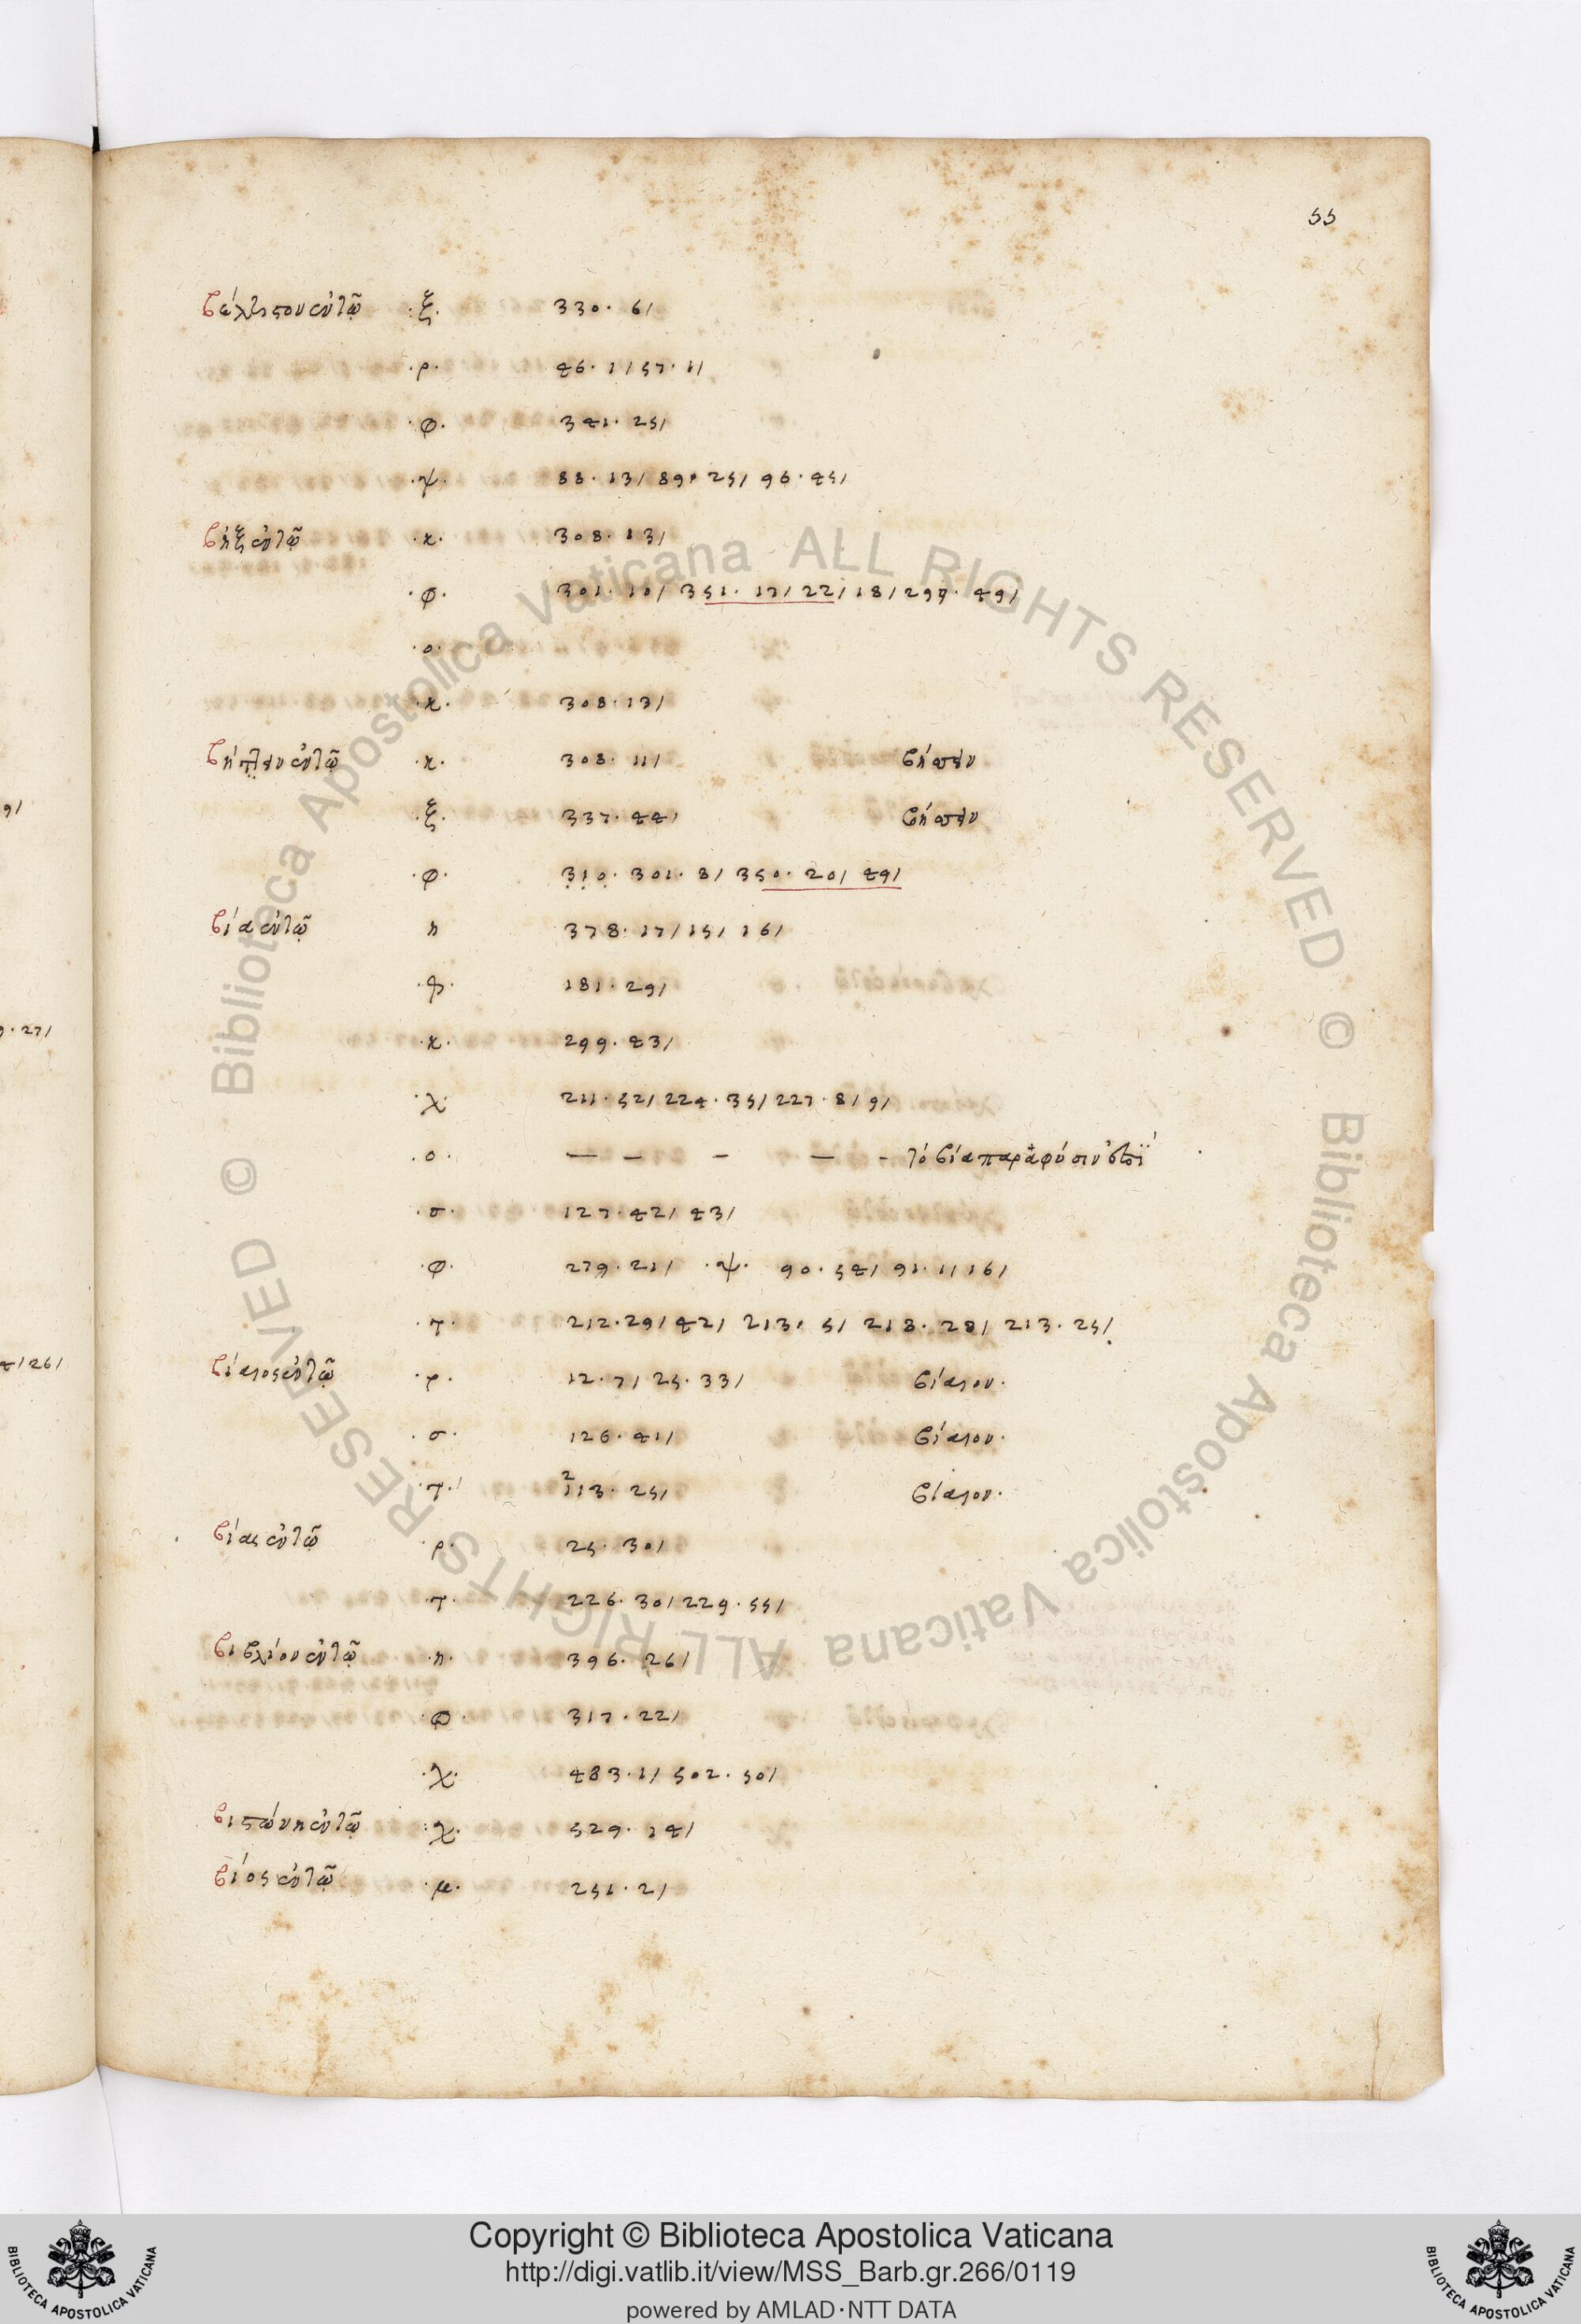 55
βέλτιστον ἐν τῷ ·ξ· 330· 6/
·ρ· 46· 1/ 57· 1/
·φ· 341· 25/
·ψ· 88· 13/ 89· 25/ 96· 45/
βὴξ ἐν τῷ ·κ· 308· 13/
·φ· 301· 10/ 351· 17/ 22/ 18/ 297· 49/
·ο·
·κ· 308· 13/
ἐν τῷ ·κ· 308· 11/
·ξ· 337· 44/
·φ· 310· 301· 8/ 350· 20/ 49/
βία ἐν τῷ η 378· 17/ 15/ 16/
181· 29/
·κ· 299· 43/
·χ· 211· 52/ 224· 35/ 227· 8/ 9/
·ο· — – – — – τὸ βία παρὰ φύσιν
·σ· 127· 42/ 43/
·φ· 279· 21/ ·ψ· 90· 54/ 91· 1/ 16/
·τ· 212· 29/ 42/ 213· 5/ 218· 28/ 213· 25/
βίαιος ἐν τῷ ·ρ· 12· 7/ 25· 33/ βίαιον·
·σ· 126· 41/ βίαιον·
·τ· 2 113· 25/ βίαιον·
βίας ἐν τῷ ·ρ· 25· 30/
·τ· 226· 30/ 229· 55/
βιβλίον ἐν τῷ ·η· 396· 26/
·φ· 317· 22/
·χ· 483· 1/ 502· 50/
ἐν τῷ ·χ· 529· 14/
βίος ἐν τῷ ·μ· 251· 2/
9/
9· 27/
4/ 26/
© Biblioteca Apostolica Vaticana ALL RIGHTS RESERVED © Biblioteca Apostolica Vaticana ALL RIGHTS RESERVED
Copyright © Biblioteca Apostolica Vaticana
http://digi.vatlib.it/view/MSS_Barb.gr.266/0119
powered by AMLAD·NTT DATA
BIBLIOTECA APOSTOLICA VATICANA
BIBLIOTECA APOSTOLICA VATICANA